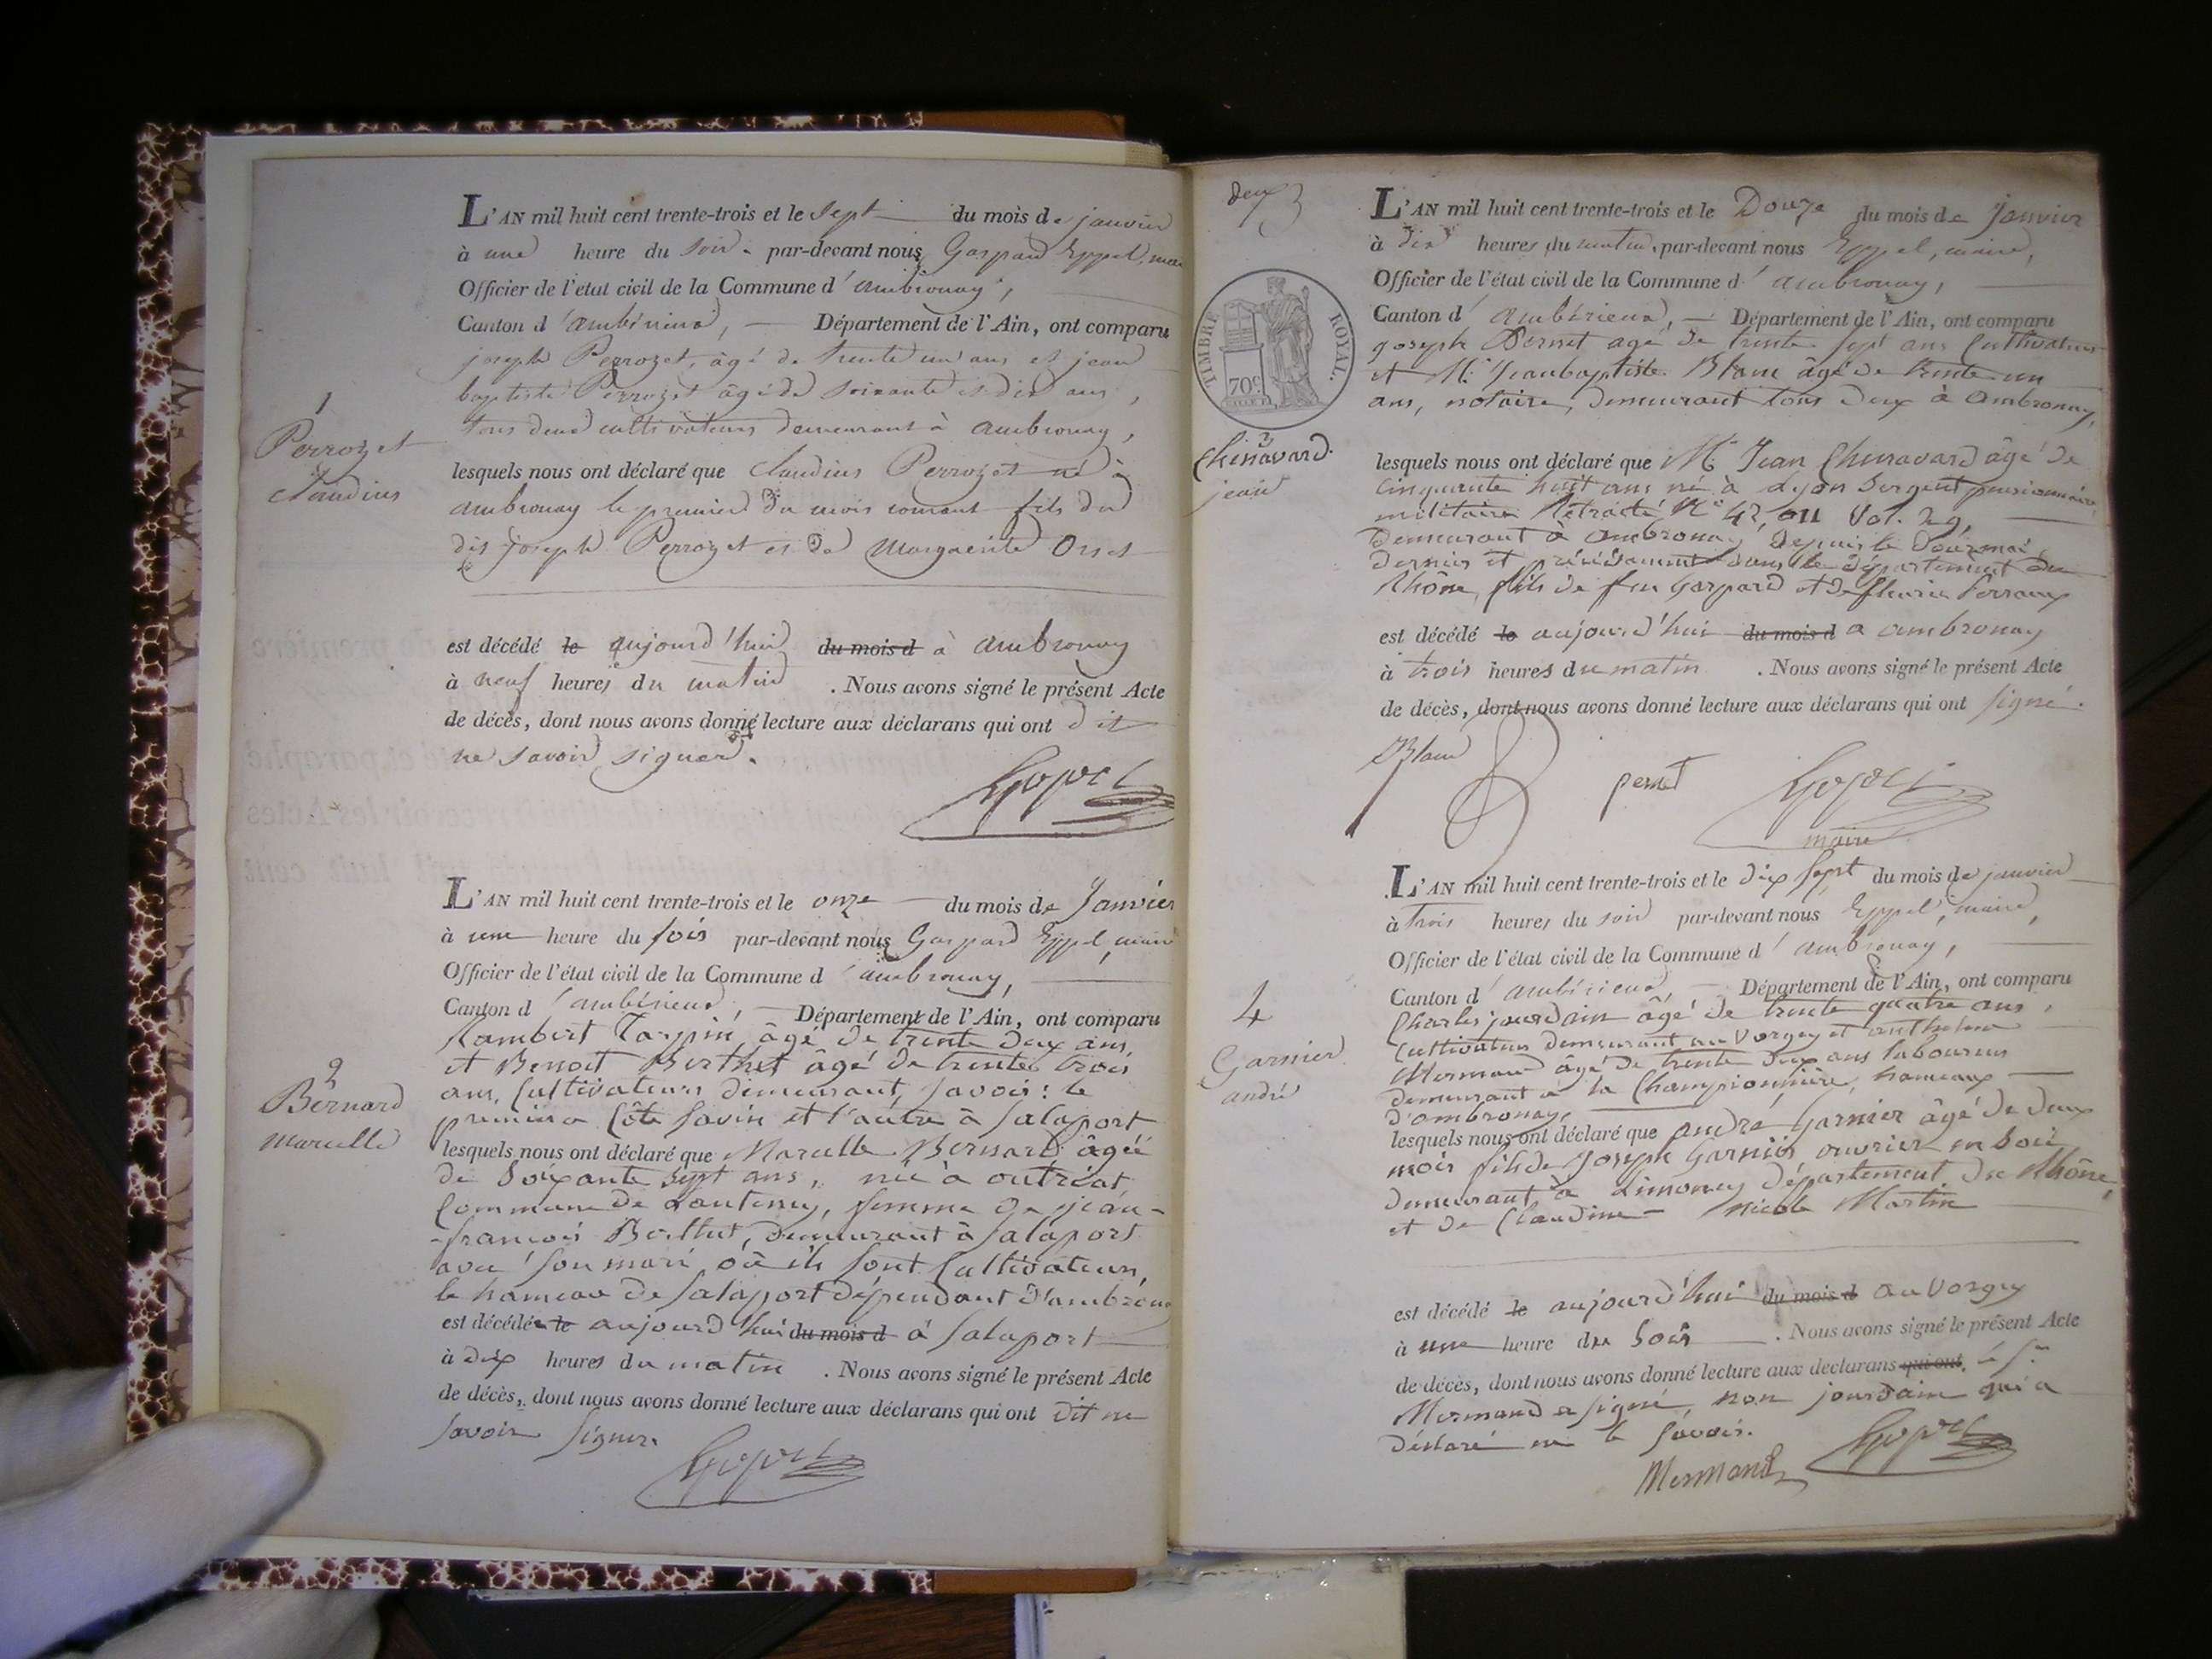 1
Perrozet
Claudius
L'AN mil huit cent trente-trois et le Sept du mois de janvier
à une heure du soir par-devant nous Gaspard Eppel, mai
Officier de l'état civil de la Commune d'ambronay,
Canton d'ambérieux, Département de l'Ain, ont comparu
joseph Perrozet, âgé de trente un ans et jean
baptiste Perrozet âgé de soixante et dix ans,
tous deux cultivateurs demeurant à ambronay,
lesquels nous ont déclaré que Claudius Perrozet né à
ambronay le premier du mois courant fils du
dit joseph Perrozet et de Marguerite Orset
est décédé le aujourd'hui du mois d à ambronay
à neuf heures du matin . Nous avons signé le présent Acte
de décès, dont nous avons donné lecture aux déclarans qui ont dit
ne savoir signer.
Eppel
2
Bernard
Marcelle
L'AN mil huit cent trente-trois et le onze du mois de Janvier
à une heure du soir par-devant nous Gaspard Eppel, maire
Officier de l'état civil de la Commune d'ambronay,
Canton d'ambérieux, Département de l'Ain, ont comparu
Lambert Tarpin âgé de trente deux ans,
et Benoit Berthet âgé de trente trois
ans, Cultivateurs demeurant, savoir: le
premier a Côte Savin et l'autre à Salaport
lesquels nous ont déclaré que Marcelle Bernard âgée
de Soixante Sept ans, née à outriat
Commune de Lantenay, femme de jean-
françois Berthet, demeurant à Salaport
avec son mari où ils sont Cultivateurs,
le hameau de Salaport dépendant d'ambronay
est décédée le aujourd'hui du mois d à Salaport
à dix heures du matin . Nous avons signé le présent Acte
de décès, dont nous avons donné lecture aux déclarans qui ont dit ne
savoir signer.
Eppel
deux 3
TIMBRE ROYAL.
70c
3
Chenavard
jean
L'AN mil huit cent trente-trois et le Douze du mois de Janvier
à dix heures du matin, par-devant nous Eppel, maire,
Officier de l'état civil de la Commune d'ambronay,
Canton d'ambérieux, Département de l'Ain, ont comparu
Joseph Pernet agé de trente Sept ans Cultivateur
et Mr Jean baptiste Blanc âgé de trente un
ans, notaire, demeurant tous deux à Ambronay,
lesquels nous ont déclaré que Mr Jean Chenavard âgé de
Cinquante huit ans né à Lyon Sergent pensionnaire
militaire Retraité No 42,011 Vol. 29,
Demeurant à Ambronay depuis le Deux mai
Dernier et précédamment dans le département du
Rhône, fils de feu Gaspard et de fleurie
est décédé le aujourd'hui du mois d a ambronay
à trois heures du matin . Nous avons signé le présent Acte
de décès, dont nous avons donné lecture aux déclarans qui ont signé.
Blanc pernet Eppel
maire
4
Garnier
andré
L'AN mil huit cent trente-trois et le dix Sept du mois de janvier
à trois heures du soir par-devant nous Eppel, maire,
Officier de l'état civil de la Commune d'ambronay,
Canton d'ambérieux, Département de l'Ain, ont comparu
Charles jourdain âgé de trente quatre ans,
Cultivateur demeurant au Vorgey et anthelme
Mermand âgé de trente deux ans laboureur
demeurant à la Championnière, hameaux
d'ambronay,
lesquels nous ont déclaré que André Garnier âgé de deux
mois fils de Joseph Garnier ouvrier en Soie
demeurant à Limoney Département du Rhône,
et de Claudine Nicole Martin
est décédé le aujourd'hui du mois d au Vorgey
à une heure du Soir . Nous avons signé le présent Acte
de décès, dont nous avons donné lecture aux déclarans qui ont. le Sr
Mermand a signé, non jourdain qui a
déclaré ne le Savoir.
Mermand Eppel